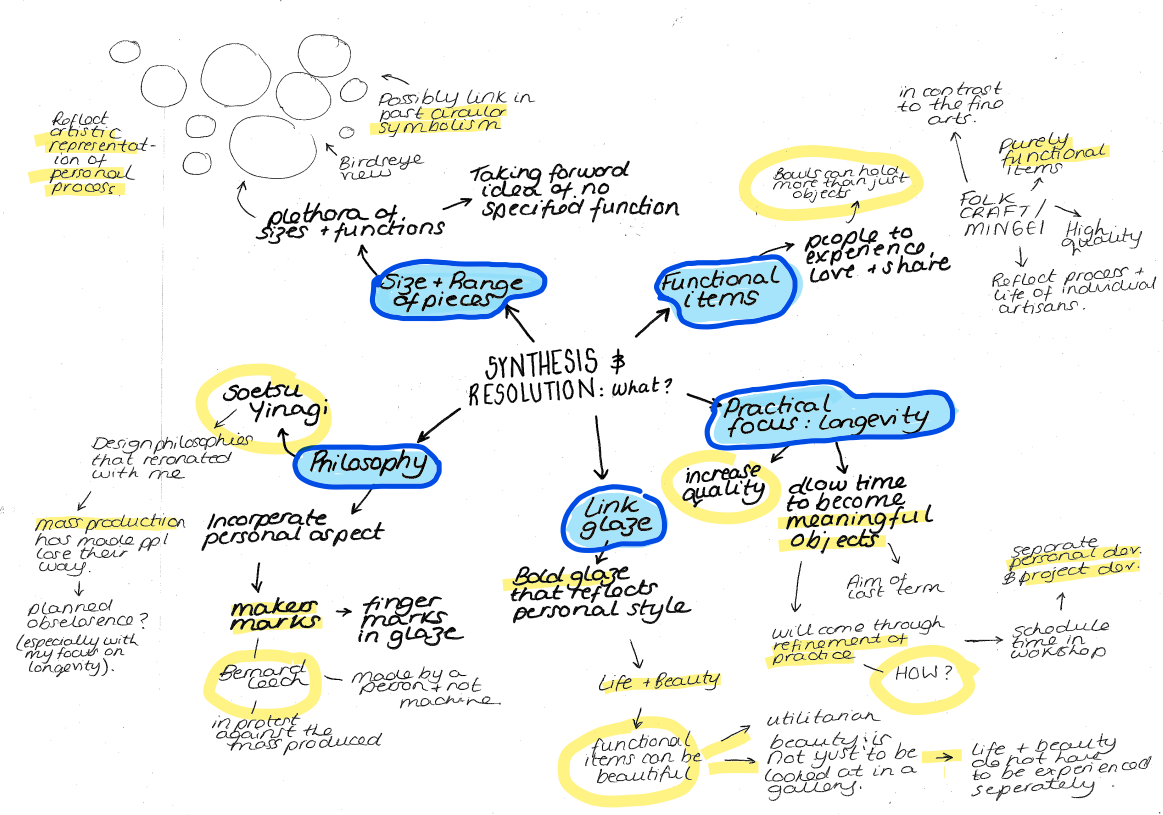 Reflect
artistic
representat-
ion of
personal
process.
Possibly link in
past circular
symbolism
Birdseye
view
plethora of
sizes + functions
Taking forward
idea of no
specified function
Size + Range
of pieces
Bowls can hold
more than just
objects
Functional
items
people to
experience
love + share
in contrast
to the fine
arts.
Purely
functional
items
FOLK
CRAFT/
MINGEI
High
quality
Reflect process +
life of individual
artisans.
SYNTHESIS &
RESOLUTION: What?
Soetsu
Yinagi
Design philosophies
that resonated
with me
Philosophy
mass production
has made ppl
lose their
way.
planned
obselasence?
(especially with
my focus on
longevity).
Incorperate
personal aspect
makers
marks
finger
marks
in glaze
Bernard
Leech
made by a
person + not
machine
in protest
against the
mass produced
Link
glaze
Bold glaze
that reflects
personal style
Life + Beauty
functional
items can be
beautiful
utilitarian
beauty: is
not just to be
looked at in a
gallery.
life + beauty
do not have
to be experienced
seperately.
Practical
focus: longevity
increase
quality
allow time
to become
meaningful
objects
Aim of
last term
will come through
refinement of
practice
HOW?
schedule
time in
workshop
separate
personal dev.
& project dev.